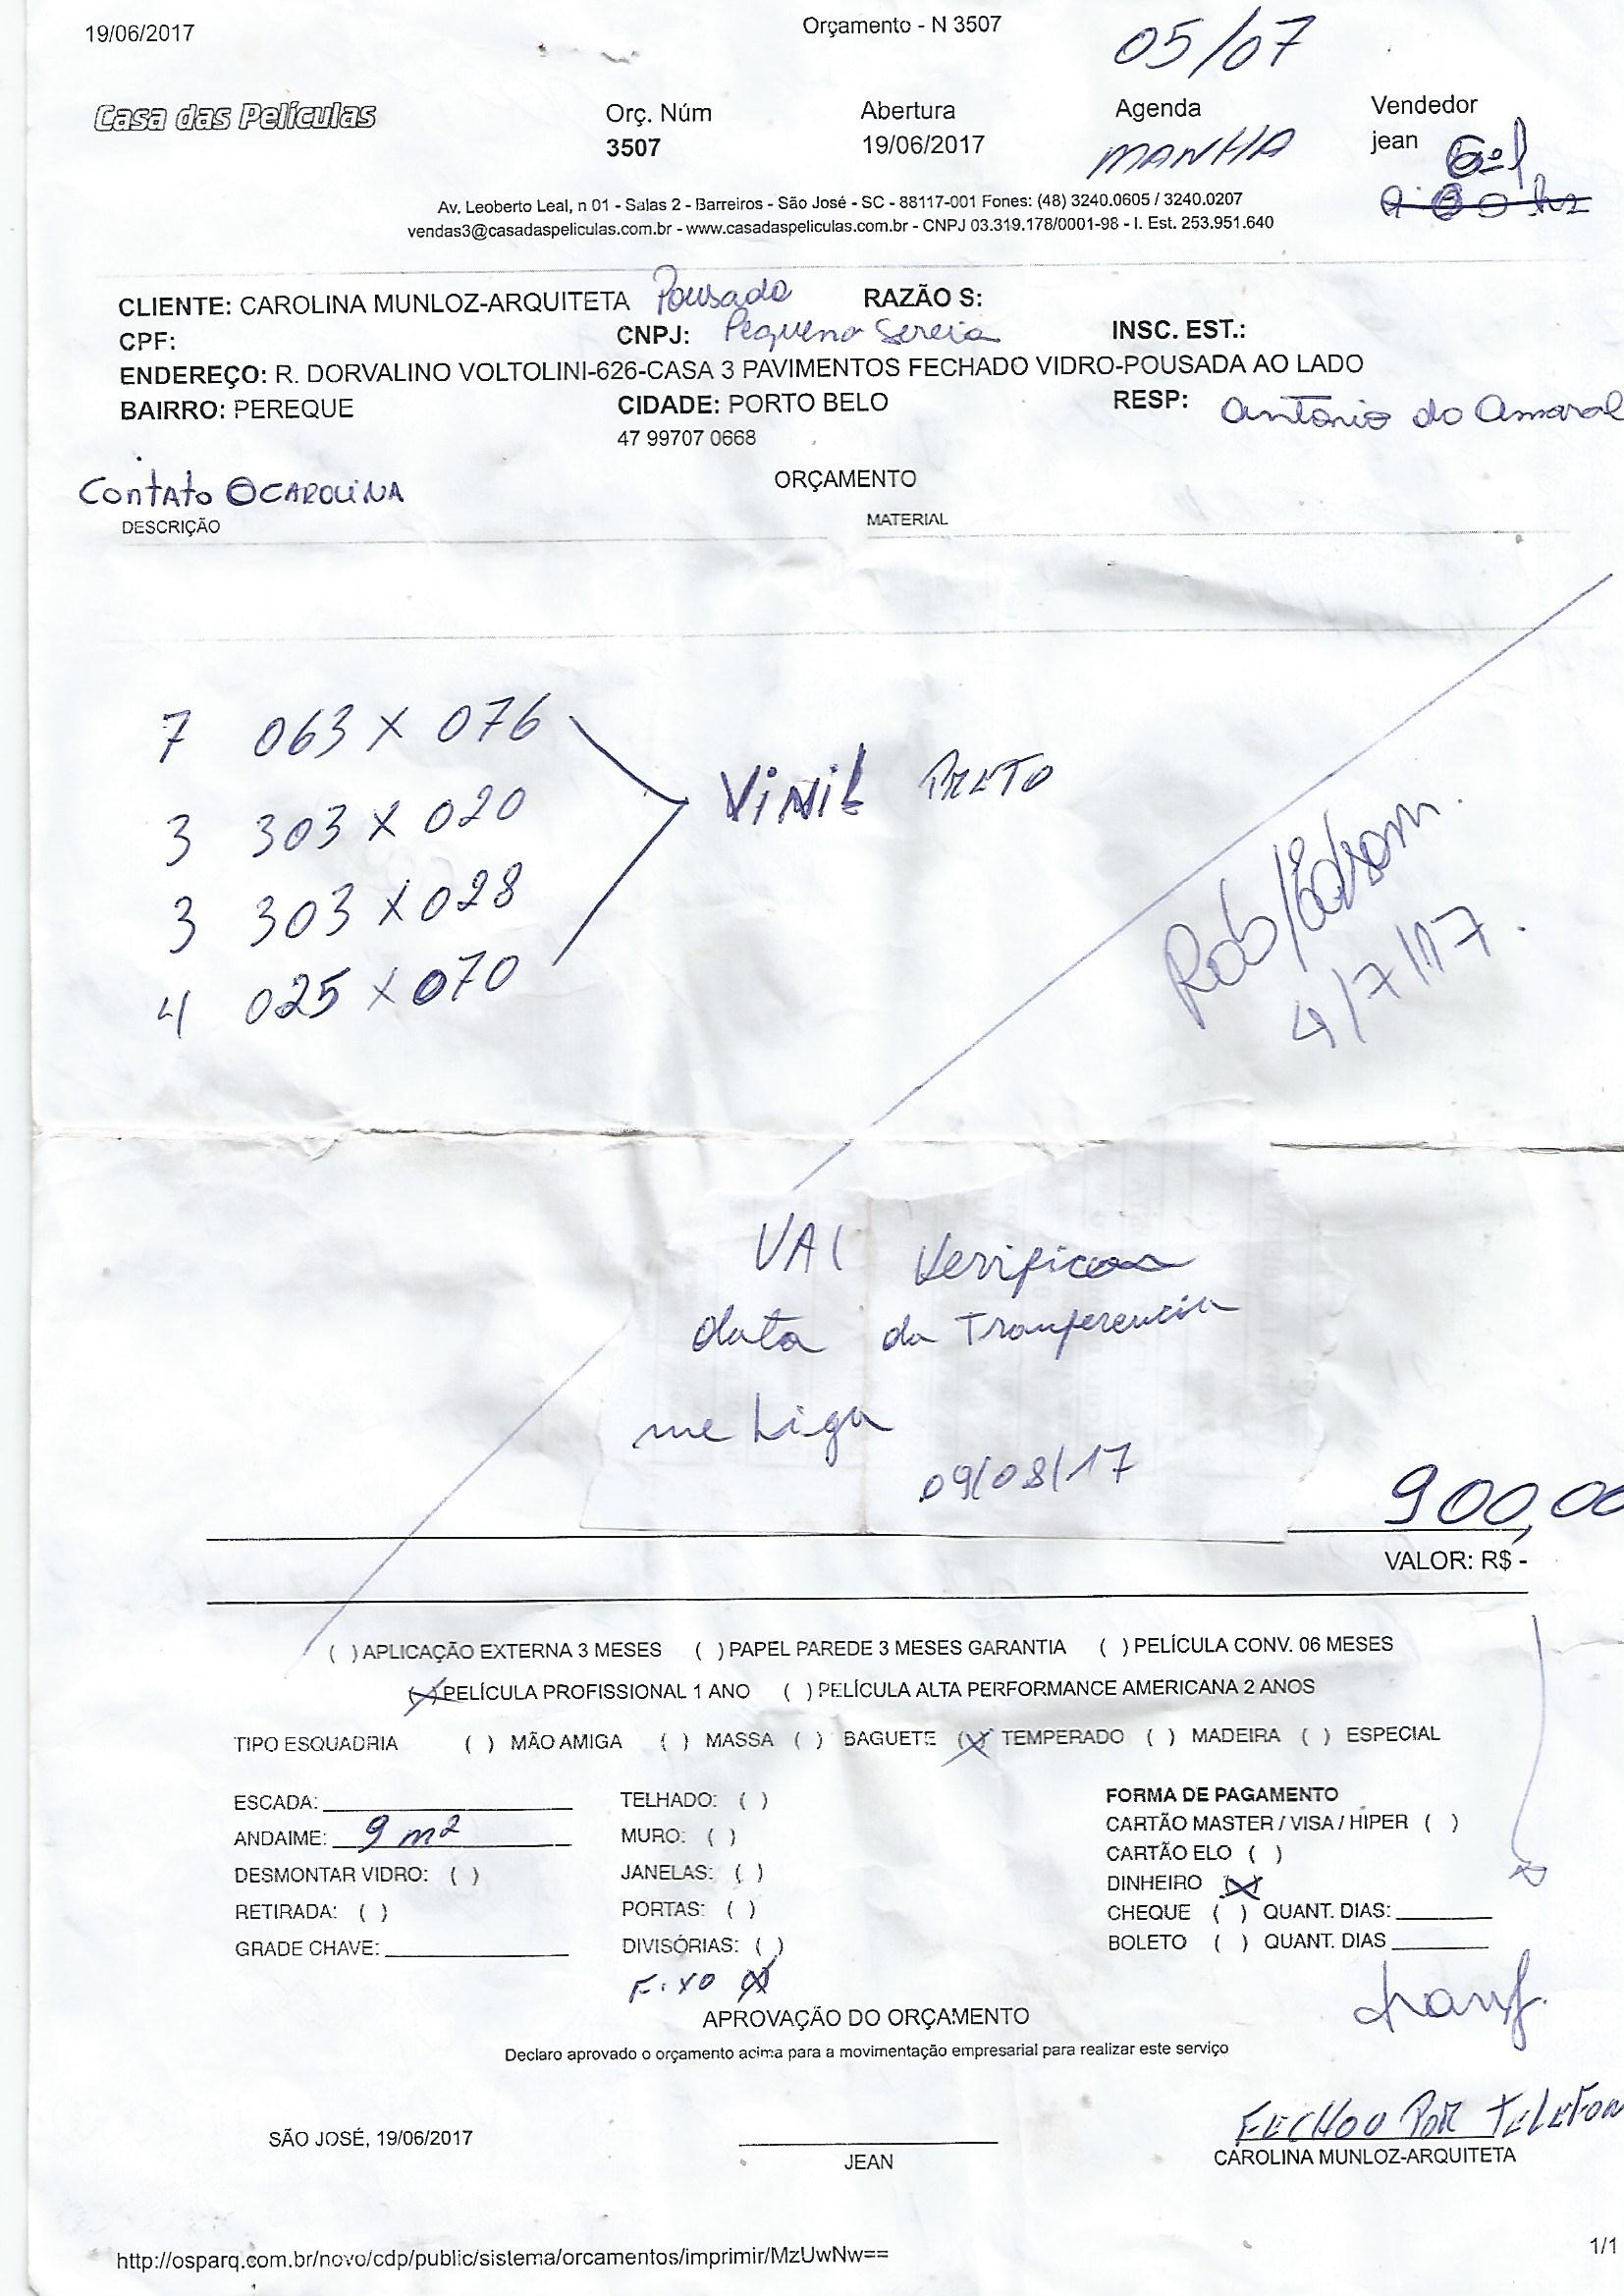 19/06/2017 Orçamento - N 3507
05/07
Casa das Películas Orç. Núm Abertura Agenda Vendedor
3507 19/06/2017 MANHA jean
9:00 hs
Av. Leoberto Leal, n 01 - Salas 2 - Barreiros - São José - SC - 88117-001 Fones: (48) 3240.0605 / 3240.0207
vendas3@casadaspeliculas.com.br - www.casadaspeliculas.com.br - CNPJ 03.319.178/0001-98 - I. Est. 253.951.640
CLIENTE: CAROLINA MUNLOZ-ARQUITETA Pousada RAZÃO S:
CPF: CNPJ: Pequena Sereia INSC. EST.:
ENDEREÇO: R. DORVALINO VOLTOLINI-626-CASA 3 PAVIMENTOS FECHADO VIDRO-POUSADA AO LADO
BAIRRO: PEREQUE CIDADE: PORTO BELO RESP: Antonio do Amaral
47 99707 0668
Contato CAROLINA ORÇAMENTO
DESCRIÇÃO MATERIAL
7 063 X 076
VINIL PRETO
3 303 X 020
3 303 X 028
4 025 X 070
Rob/Edsom.
4/7/17.
VAI Verificar
data da Tranferencia
me Liga
09/08/17
900,00
VALOR: R$ -
( ) APLICAÇÃO EXTERNA 3 MESES ( ) PAPEL PAREDE 3 MESES GARANTIA ( ) PELÍCULA CONV. 06 MESES
(X) PELÍCULA PROFISSIONAL 1 ANO ( ) PELÍCULA ALTA PERFORMANCE AMERICANA 2 ANOS
TIPO ESQUADRIA ( ) MÃO AMIGA ( ) MASSA ( ) BAGUETE (X) TEMPERADO ( ) MADEIRA ( ) ESPECIAL
ESCADA: TELHADO: ( ) FORMA DE PAGAMENTO
ANDAIME: 9 m² MURO: ( ) CARTÃO MASTER / VISA / HIPER ( )
DESMONTAR VIDRO: ( ) JANELAS: ( ) CARTÃO ELO ( )
RETIRADA: ( ) PORTAS: ( ) DINHEIRO (X)
GRADE CHAVE: DIVISÓRIAS: ( ) CHEQUE ( ) QUANT. DIAS:
BOLETO ( ) QUANT. DIAS
Fixo (X)
tranf.
APROVAÇÃO DO ORÇAMENTO
Declaro aprovado o orçamento acima para a movimentação empresarial para realizar este serviço
FECHOU POR TELEFON
SÃO JOSÉ, 19/06/2017 JEAN CAROLINA MUNLOZ-ARQUITETA
http://osparq.com.br/novo/cdp/public/sistema/orcamentos/imprimir/MzUwNw== 1/1